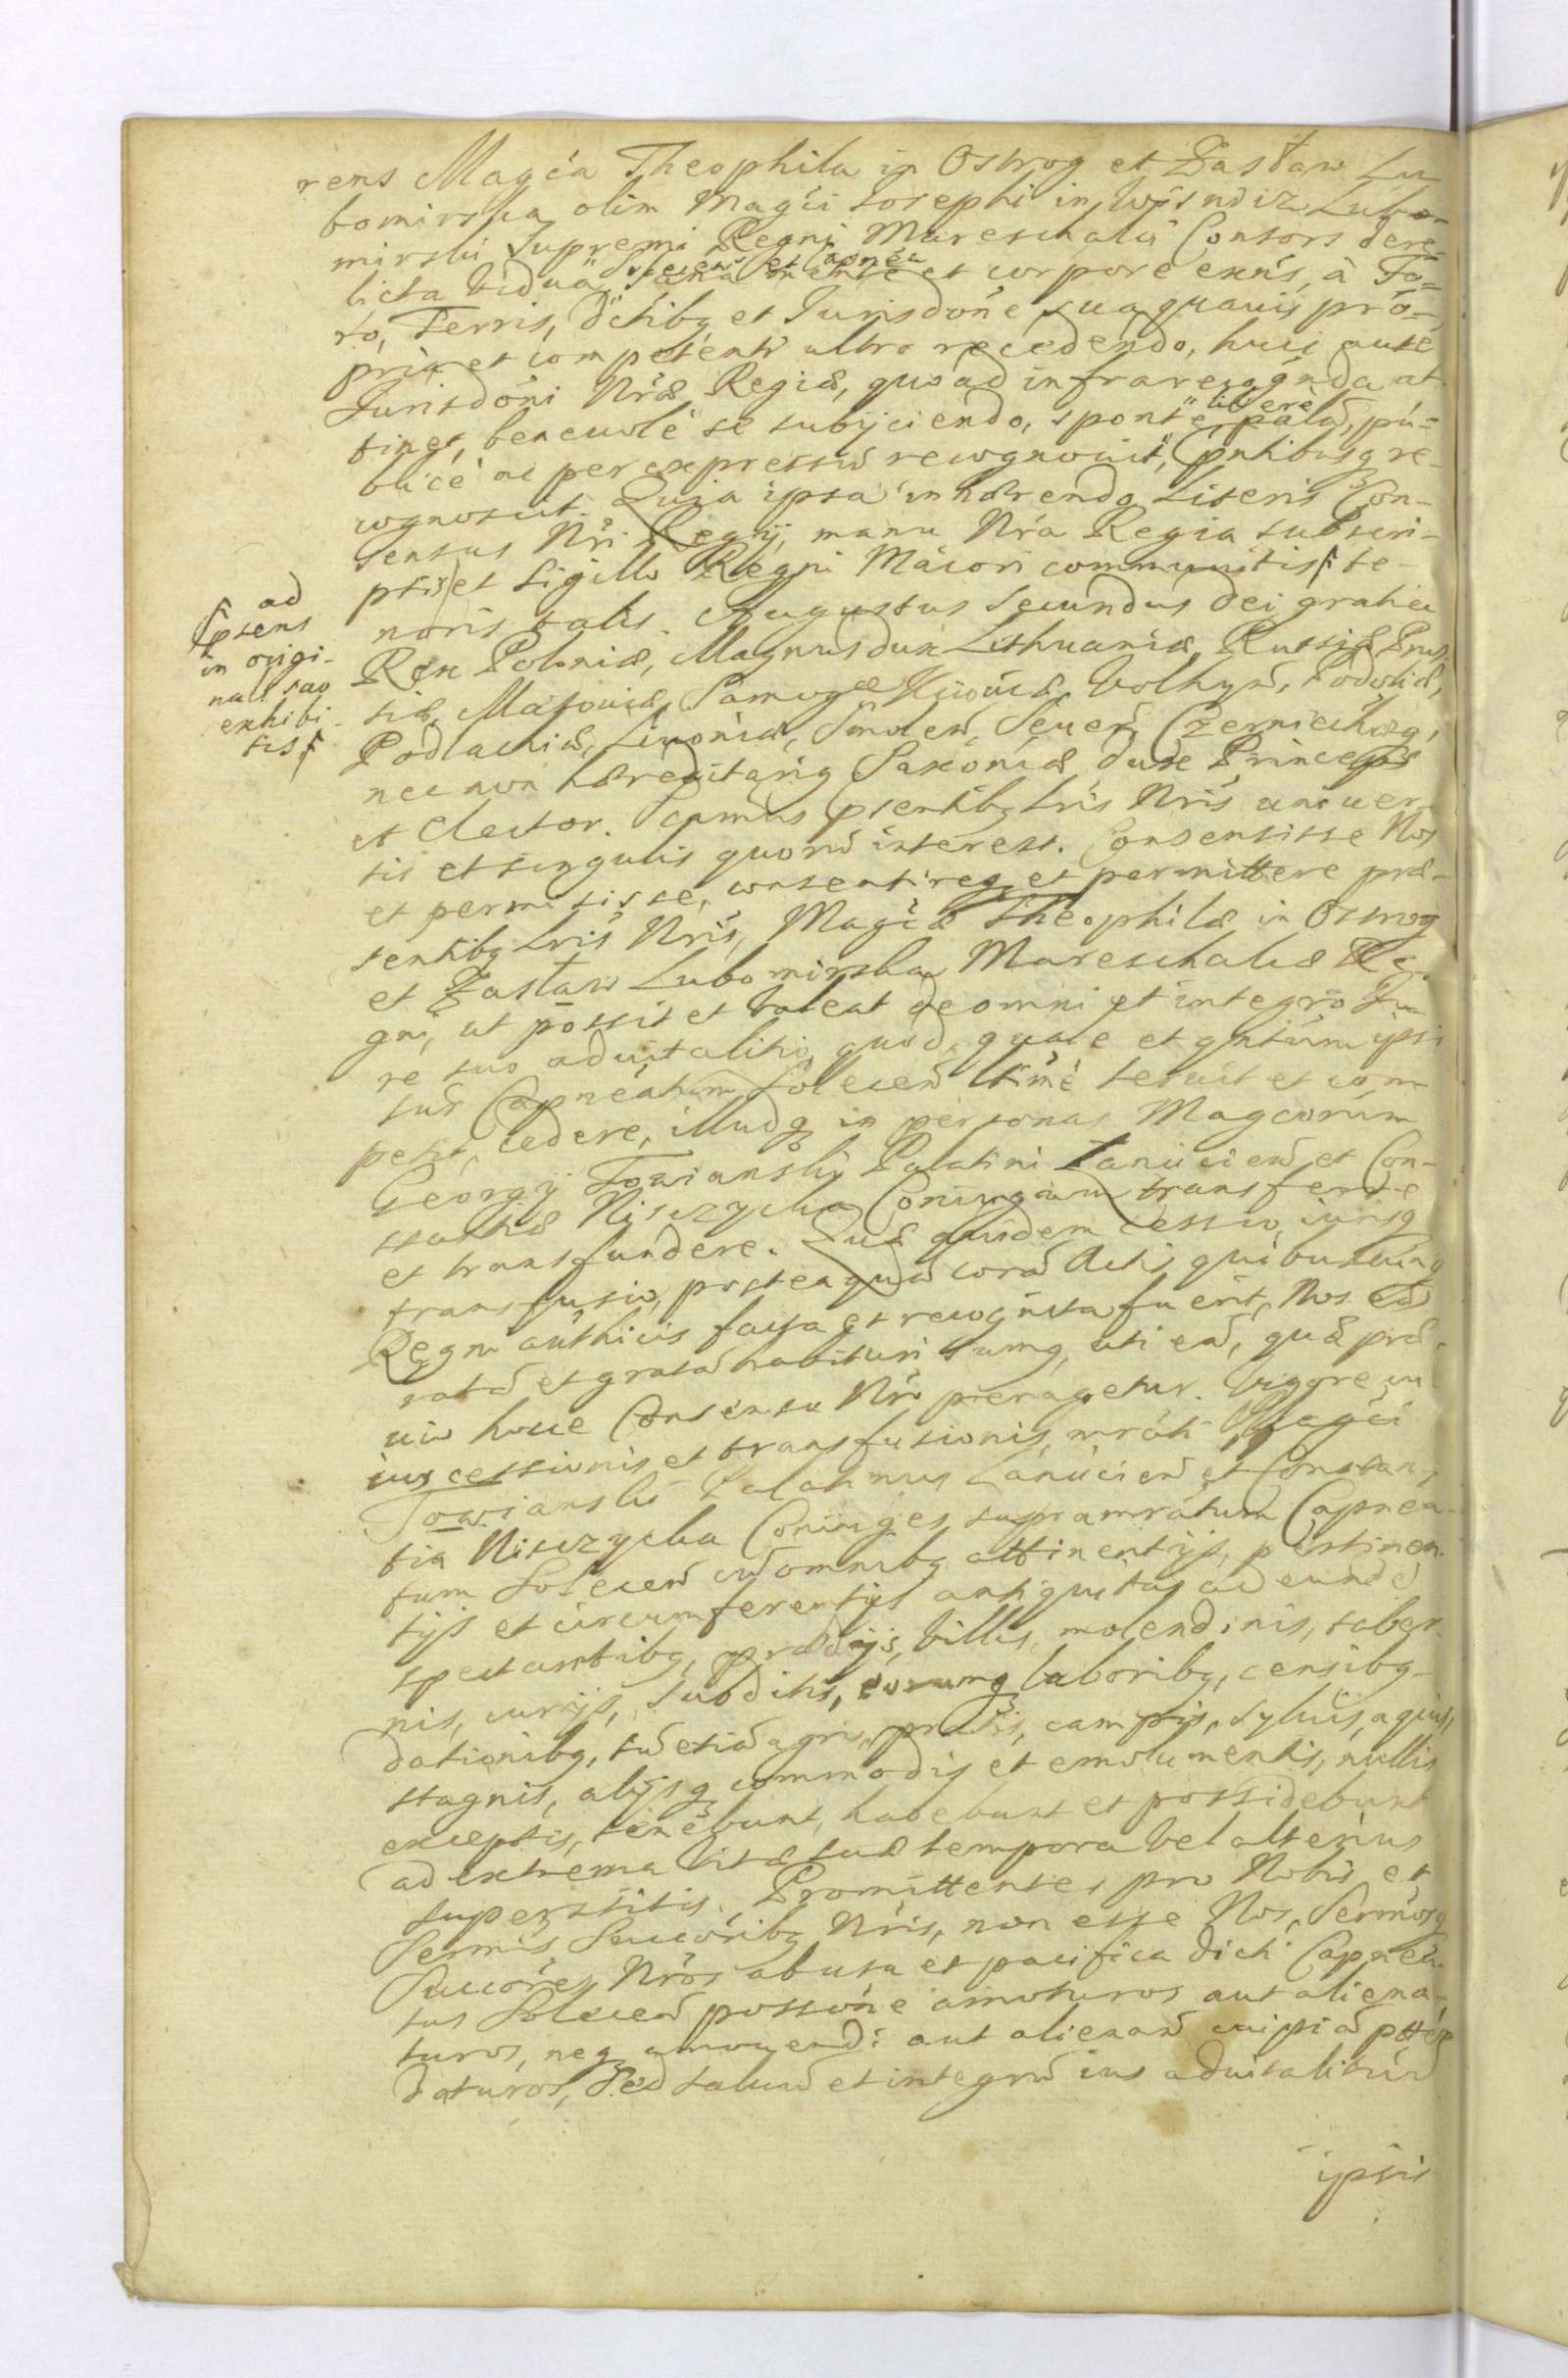 rens Magća Theophila in Ostrog et Zasław Lu
bomirska olim Magći Iosephi in Wisnicz Lubo-
mirski Supremi Regni Mareschalii Consors dere-
licta vidua, Solecens et Capnea
sana mente et corpore exns, à Fo-
ro, Terris, Dctibq et Iurisdone sua quauis pro-
pria et competenti ultro recedendo, huic autē
Iurisdoni Nrae Regiae, quoad infrarecognda at
tinet, beneuole se subijciendo, spontē libere palā, pu-
blice ac per expressū recognouit, pntibusq re-
cognoscit. Quia ipsa inhaerendo Literis Con-
sensus Nri Regij, manu Nra Regia subscri-
ptis et sigillo Regni Maiori communitis te-
ad
psens
in origi-
nali suo
exhibi-
tis
noris talis. Augustus Secundus Dei gratia
Rex Poloniae, Magnus dux Lithuaniae, Russiae Prus
siae, Masouiae, Samogae Kijouiae, Volhyn, Podoliae,
Podlachiae, Liuoniae, Smolen, Seuer, Czerniechoq,
nec non haereditariq Saxoniae dux Princeps
et Elector. Scimus psentibq Lris Nris uniuer
sis et singulis quorū interest. Consensisse Nos
et permisisse, consentireq et permittere prae-
sentibq Lris Nris, Magcae Theophilae in Ostrog
et Zasław Lubomirska Mareschalcae Re-
gni, ut possit et valeat de omni et integro Iu
re suo aduitalitio, quod, quale et qntum ipsi
sup Capneatum Solecen ltime seruit et com
petit, cedere, illudq in personas Magcorum
Georgij Towianskij Palatini Lanicien et Con-
stantiae Niszczycka Coniugum transferre
et transfundere. Quae quidem cessio, iurisq
transfusio, posteaquā corā Actis quibuscunq
Regni authicis facta et recognita fuerit, Nos eā
ratā et gratā habituri sumq, uti eā, quae prae
uio hocce Consensu Nro peragetur. Vigore cu
ius cessionis et transfusionis, mrati Magći
Towianski Palatinus Lanicien et Constan
tia Niszczycka Coniuges supramratum Capnea-
tum Solecen cū omnibq attinentijs, pertinen
tijs et circumferentijs antiquitus ad eundē
spectantibq, praedijs, villis, molendinis, taber
nis, curijs, subditis, eorumq laboribq, censibq
dationibq, tū etiā agris, pratis, campis, syluis, aquis,
stagnis, alijsq commodis et emolumentis, nullis
exceptis, tenebunt, habebunt et possidebunt
ad extrema vitae suae tempora vel alterius
superstitis. Promittentes pro Nobis et
Sermis Succoribq Nris, non esse Nos, Sermosq
Succores Nros ab usu et pacifica dicti Capnea
tus Solecen possone amoturos aut aliena-
turos, neq amouendi aut alienan cuipiā pottē
daturos, Sed saluū et integrū ius aduitalitiū
ipsis